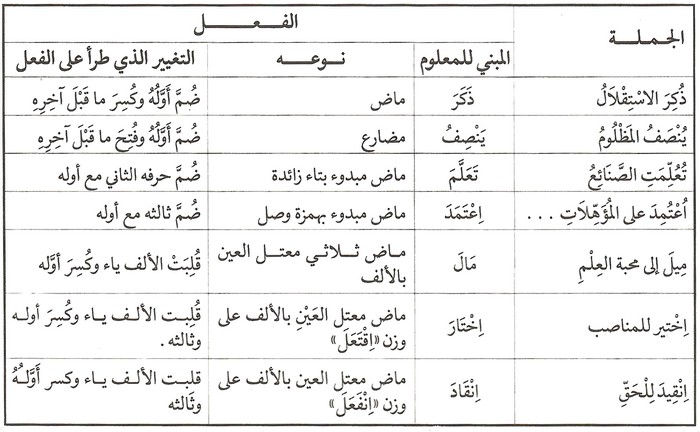 الجـمـلــة
الـفـــعـــــــل
المبني للمعلوم
نــوعـــه
التغيير الذي طرأ على الفعل
ذُكِرَ الاسْتِقْلَالُ
ذَكَرَ
ماض
ضُمَّ أَوَّلُهُ وكُسِرَ ما قَبْلَ آخِرِهِ
يُنْصَفُ المَظْلُومُ
يَنْصِفُ
مضارع
ضُمَّ أَوَّلُهُ وفُتِحَ ما قَبْلَ آخِرِهِ
تُعُلِّمَتِ الصَّنَائِعُ
تَعَلَّمَ
ماض مبدوء بتاء زائدة
ضُمَّ حرفه الثاني مع أوله
اُعْتُمِدَ على المُؤَهِّلَاتِ ...
اِعْتَمَدَ
ماض مبدوء بهمزة وصل
ضُمَّ ثالثه مع أوله
مِيلَ إلى محبة العِلْمِ
مَالَ
مـاض ثـلاثـي معتـل العين
بالألف
قُلِبَتْ الألف ياء وكُسِرَ أوَّله
اِختير للمناصب
اِخْتَارَ
ماض معتل العَيْنِ بالألف على
وزن «اِفْتَعَلَ»
قُلِبـت الألـف يـاء وكُسِرَ أولـه
وثالثه .
اِنْقِيدَ لِلْحَقِّ
اِنْقَادَ
ماض معتل العين بالألف على
وزن «اِنْفَعَلَ»
قلبـت الألـف يـاء وكسر أَوَّلُـهُ
وثَالثه